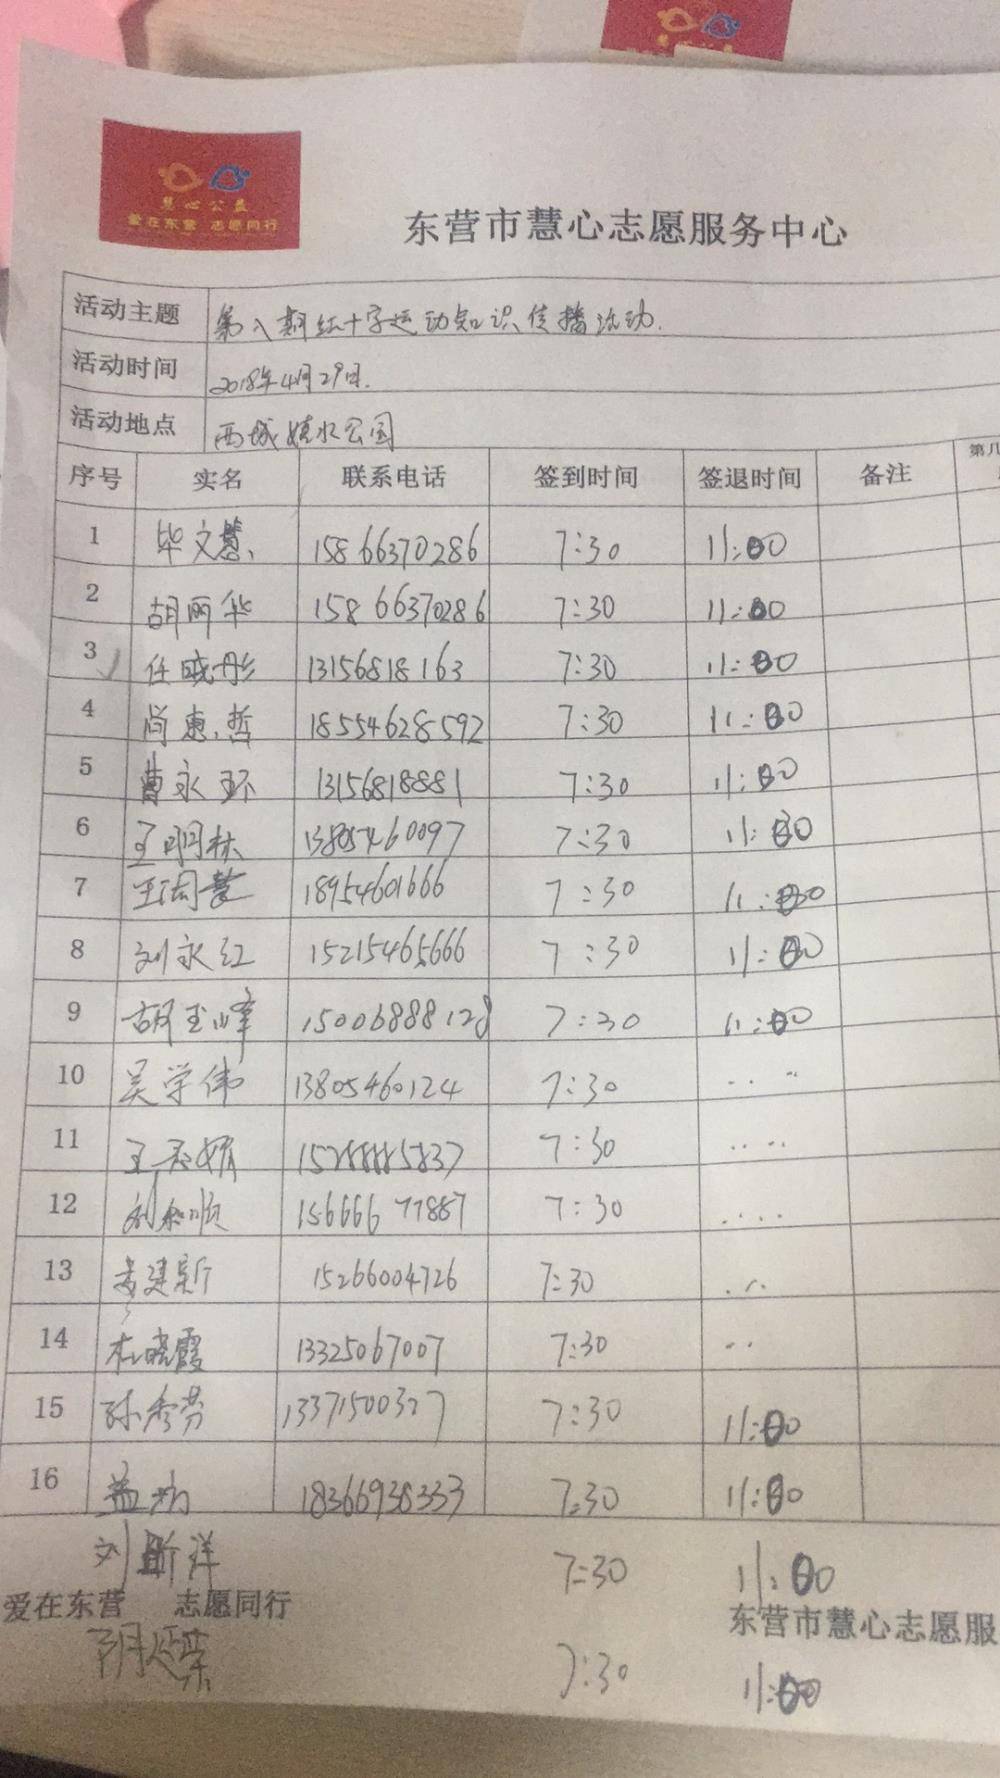 慧心公益
爱在东营 志愿同行
东营市慧心志愿服务中心
活动主题 第八期红十字运动知识传播活动.
活动时间 2018年4月29日.
活动地点 西城嬉水公园
第几
序号 实名 联系电话 签到时间 签退时间 备注
1 毕文慧 15866370286 7:30 11:00
2 胡丽华 15866370286 7:30 11:00
3 任晓彤 13156818163 7:30 11:00
4 尚惠哲 18554628592 7:30 11:00
5 曹永环 13156818881 7:30 11:00
6 王明林 13805460097 7:30 11:00
7 18954601666 7:30 11:00
8 刘永红 15215465666 7:30 11:00
9 胡玉峰 15006888128 7:30 11:00
10 吴学伟 13805460124 7:30
11 15288885837 7:30
12 15666677887 7:30
13 建新 15266004726 7:30
14 杜晓霞 13325067007 7:30
15 孙秀芬 13371500327 7:30 11:00
16 18366938333 7:30 11:00
刘 洋 7:30 11:00
爱在东营 志愿同行 东营市慧心志愿服
7:30 11:00